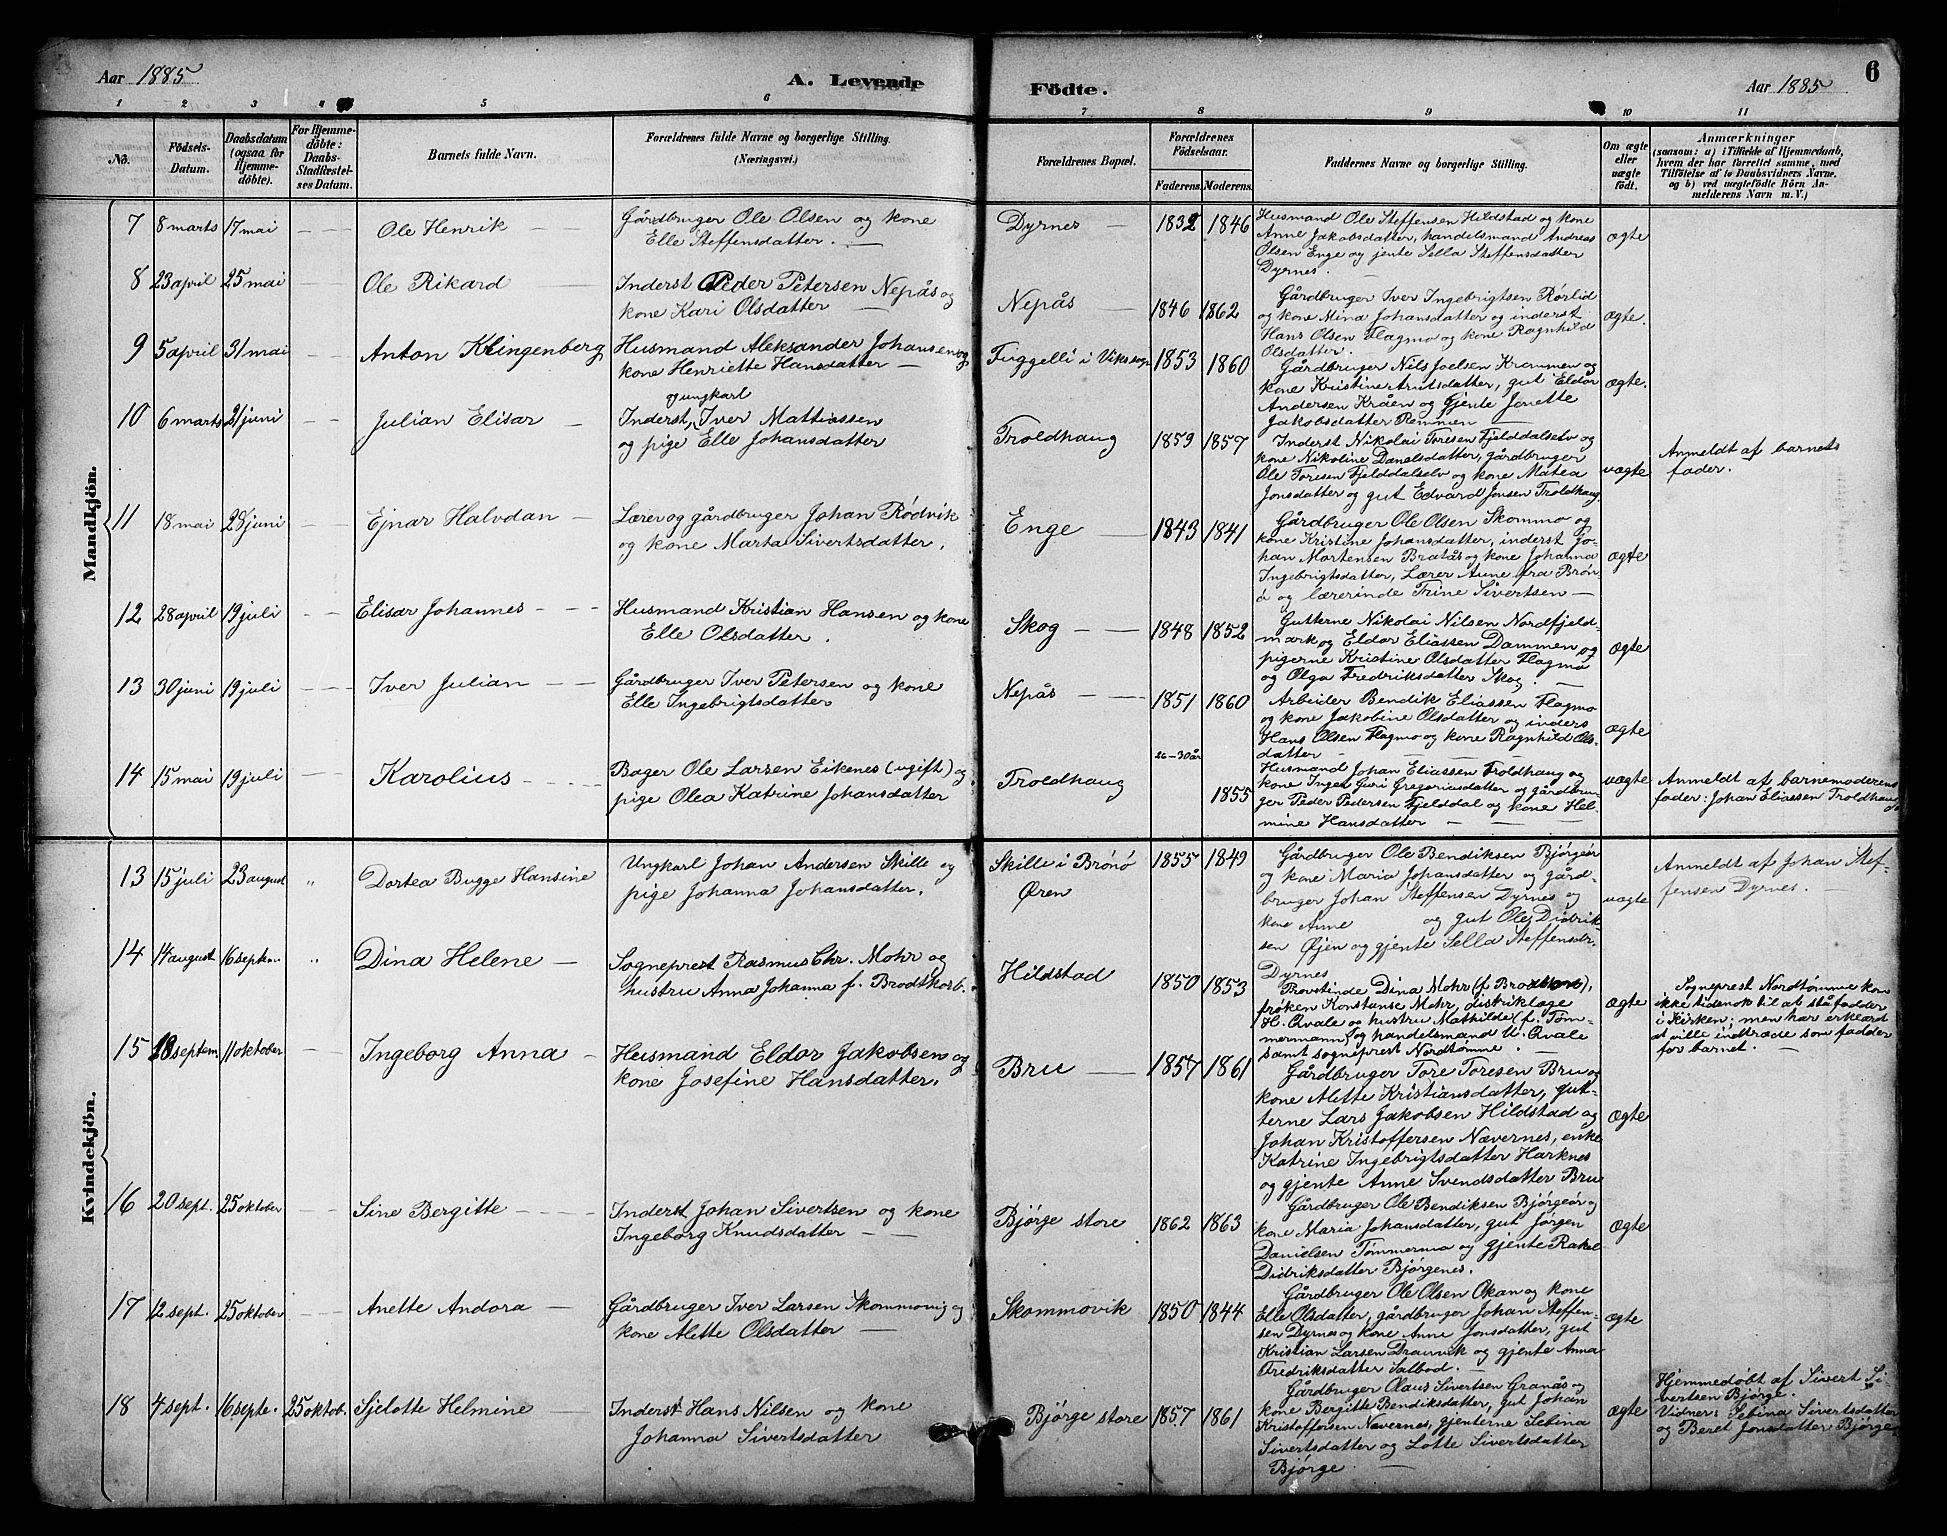 Aar 1885 A. Levende Födte. Aar 1885 6
1 2 3 4 5 6 7 8 9 10 11
No. Födsels-Datum. Daabsdatum (ogsaa for Hjemme-döbte). For Hjemme-döbte: Daabs-Stadfæstel-ses Datum. Barnets fulde Navn. Forældrenes fulde Navne og borgerlige Stilling. (Næringsvei.) Forældrenes Bopæl. Forældrenes Födselsaar. Faderens. Moderens. Faddernes Navne og borgerlige Stilling. Om ægte eller uægte födt. Anmærkninger (saasom: a) i Tilfælde af Hjemmedaab, hvem der har forrettet samme, med Tilföielse af to Daabsvidners Navne. og b) ved uægtefödte Börn An-melderens Navn m. V.)
Mandkjön.
7 8 marts 17 mai — — Ole Henrik —
Gårdbruger Ole Olsen og kone
Elle Steffensdatter. —
Dyrnes — 1832 1846
Husmand Ole Steffensen Hildstad og kone
Anne Jakobsdatter, handelsmand Andreas
Olsen Enge og jente Sella Steffensdatter
Dyrnes. —
ægte
8 23 april 25 mai — — Ole Rikard —
Inderst Peder Petersen Nepås og
kone Kari Olsdatter —
Nepås — 1846 1862
Gårdbruger Iver Ingebrigtsen Rørlid
og kone Mina Johansdatter og inderst
Hans Olsen Flagmo og kone Ragnhild
Olsdatter. —
ægte.
9 5 april 31 mai — — Anton Klingenberg
Husmand Aleksander Johansen og
kone Henriette Hansdatter —
Fuggelli i Viks sogn 1853 1860
Gårdbruger Nils Joelsen Krommen og
kone Kristine Arntsdatter, gut Eldor
Andersen Kråen og Gjente Jonette
Jakobsdatter Remmen —
ægte.
10 6 marts 21 juni — — Julian Elisar —
og ungkarl
Inderst, Iver Mattiassen
og pige Elle Johansdatter
Troldhaug 1859 1857
Inderst Nikolai Toresen Fjelddalselv og
kone Nikoline Danelsdatter, gårdbruger
Ole Toresen Fjelddalselv og kone Matea
Jonsdatter og gut Edvard Jensen Troldhaug
uægte
Anmeldt af barnets
fader.
11 18 mai 28 juni — — Ejnar Halvdan —
Lærer og gårdbruger Johan Rødvik
og kone Marta Sivertsdatter.
Enge — 1843 1841
Gårdbruger Ole Olsen Skommo og
kone Kristine Johansdatter, inderst Jo-
han Martensen Bratås og kone Johanna
Ingebrigtsdatter, Lærer Aune fra Brøn-
ø og lærerinde Trine Sivertsen —
ægte
12 28 april 19 juli — — Elisar Johannes — — —
Husmand Kristian Hansen og kone
Elle Olsdatter.
Skog — — 1848 1852
Gutterne Nikolai Nilsen Nordfjeld-
mark og Eldor Eliassen Dammen og
pigerne Kristine Olsdatter Flagmo
og Olga Fredriksdatter Skog. —
ægte
13 30 juni 19 juli — — Iver Julian — —
Gårdbruger Iver Petersen og kone
Elle Ingebrigtsdatter
Nepås — — 1851 1860
Arbeider Bendik Eliassen Flagmo
og kone Jakobine Olsdatter og inders
Hans Olsen Flagmo og kone Ragnhild Ols-
datter — — —
ægte
14 15 mai 19 juli — — Karolius — — —
Bager Ole Larsen Eikenes (ugift) og
pige Olea Katrine Johansdatter
Troldhaug 26–30 år 1855
Husmand Johan Eliassen Troldhaug og
kone Inger Guri Gregoriusdatter og gårdbru-
ger Peder Pedersen Fjelddal og kone Hel-
mine Hansdatter — — —
uægte
Anmeldt af barnemoderens
fader: Johan Eliassen Troldhaug
Kvindekjön.
13 15 juli 23 august „ Dortea Bugge Hansine
Ungkarl Johan Andersen Skille og
pige Johanna Johansdatter.
Skille i Brønø
Øren
1855 1849
Gårdbruger Ole Bendiksen Bjørgeør
og kone Maria Johansdatter og gård-
bruger Johan Steffensen Dyrnes og
kone Anne og gut Ole Didrik-
sen Øjen og gjente Sella Steffensdr.
Dyrnes
uægte
Anmeldt af Johan Stef-
fensen Dyrnes. —
14 14 august 16 septem. „ Dina Helene —
Sogneprest Rasmus Chr. Mohr og
hustru Anna Johanna f. Brodtkorb.
Hildstad 1850 1853
Provstinde Dina Mohr (f. Brodtkorb),
frøken Konstanse Mohr, distriktslæge
H. Qvale og hustru Mathilde (f. Tøm-
mermann) og handelsmand U. Qvale
samt sogneprest Nordtømme. —
ægte
Sogneprest Nordtømme kom
ikke tidsnok til at stå fadder
i Kirken; men har erklæret
at ville indtræde som fadder
for barnet. —
15 18 septem. 11 oktober — Ingeborg Anna —
Husmand Eldor Jakobsen og
kone Josefine Hansdatter.
Bru — 1857 1861
Gårdbruger Tore Toresen Bru og
kone Alette Kristiansdatter, gut-
terne Lars Jakobsen Hildstad og
Johan Kristoffersen Nævernes, enke
Katrine Ingebrigtsdatter Harknes
og gjente Anne Svendsdatter Bru
ægte
16 20 sept. 25 oktober — — Sine Bergitte — — —
Inderst Johan Sivertsen og kone
Ingeborg Knudsdatter — —
Bjørge store 1862 1863
Gårdbruger Ole Bendiksen Bjørgeør og
kone Maria Johansdatter, gut Jørgen
Danielsen Tømmermo og gjente Rakel
Didriksdatter Bjørgenes.
ægte
17 12 sept. 25 oktober — — Anette Andora —
Gårdbruger Iver Larsen Skommovig og
kone Alette Olsdatter —
Skommovik 1850 1844
Gårdbruger Ole Olsen Okan og kone
Elle Olsdatter, gårdbruger Johan Steffen-
sen Dyrnes og kone Anne Jonsdatter, gut
Kristian Larsen og gjente Anna
Fredriksdatter Salbod. —
ægte
18 4 sept. 16 septe. 25 oktob. Sjelotte Helmine —
Inderst Hans Nilsen og kone
Johanna Sivertsdatter
Bjørge store 1857 1861
Gårdbruger Olaus Sivertsen Granås og
kone Bergitte Bendiksdatter, gut Johan
Kristoffersen Nævernes, gjenterne Sebina
Sivertsdatter og Lotte Sivertsdatter
Bjørge. —
ægte
Hjemmedøbt af Sivert Si-
vertsen Bjørge.
Vidner: Sebina Sivertsdatter
og Beret Jonsdatter Bjørge